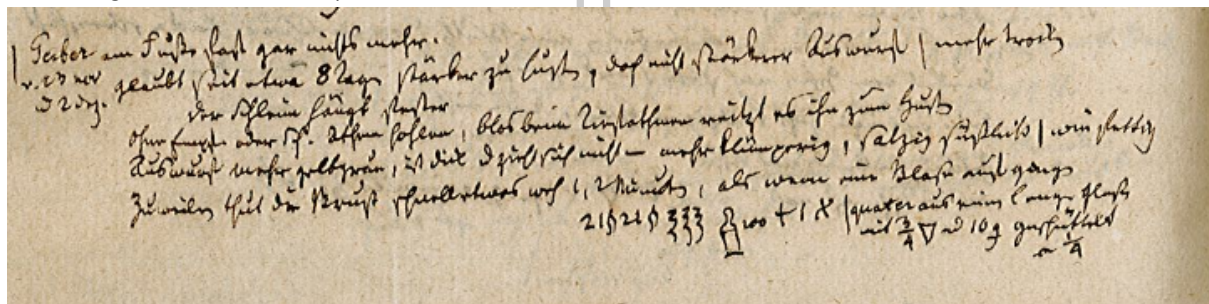 Geiber am Fuße fast gar nichts mehr.
v. 23 nov glaubt seit etwa 8 Tagen stärker zu husten, doch nicht stärkerer Auswurf | mehr trocken
d 2 dez. der Schleim hängt fester
ohne Empf. oder Athem hohlen, blos beim Tiefathmen reitzt es ihn zum Husten
Auswurf mehr gelbgrün, ist dick zieht sich nicht – mehr klümperig, salzig süßlich | wie fettig
Zuweilen thut die Brust schnell etwas weh 1, 2 Minuten, als wenn eine Blase aufgange
100 + 1 | aus einem Lange Glase
mit 3/4 10 geschüttelt
1/4